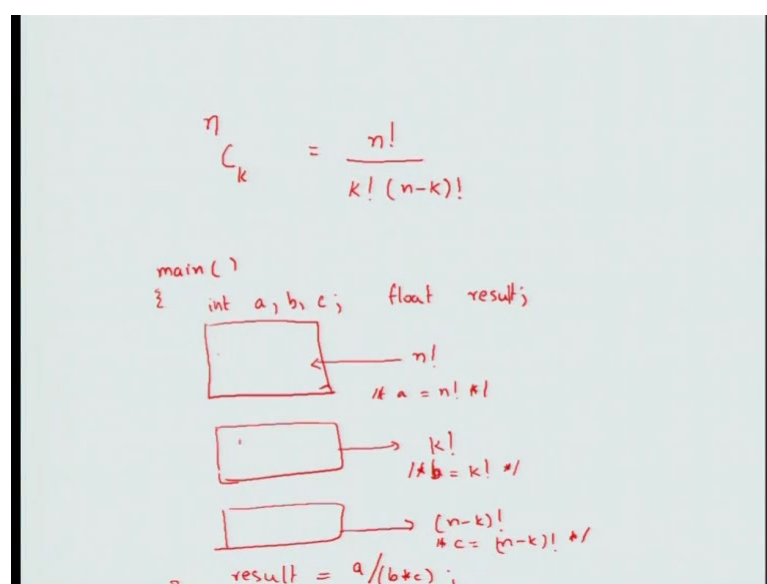 n
C_k = n! / k! (n-k)!
main()
{ int a, b, c; float result;
n!
/* a = n! */
k!
/* b = k! */
(n-k)!
* c = (n-k)! */
result = a/(b*c) ;